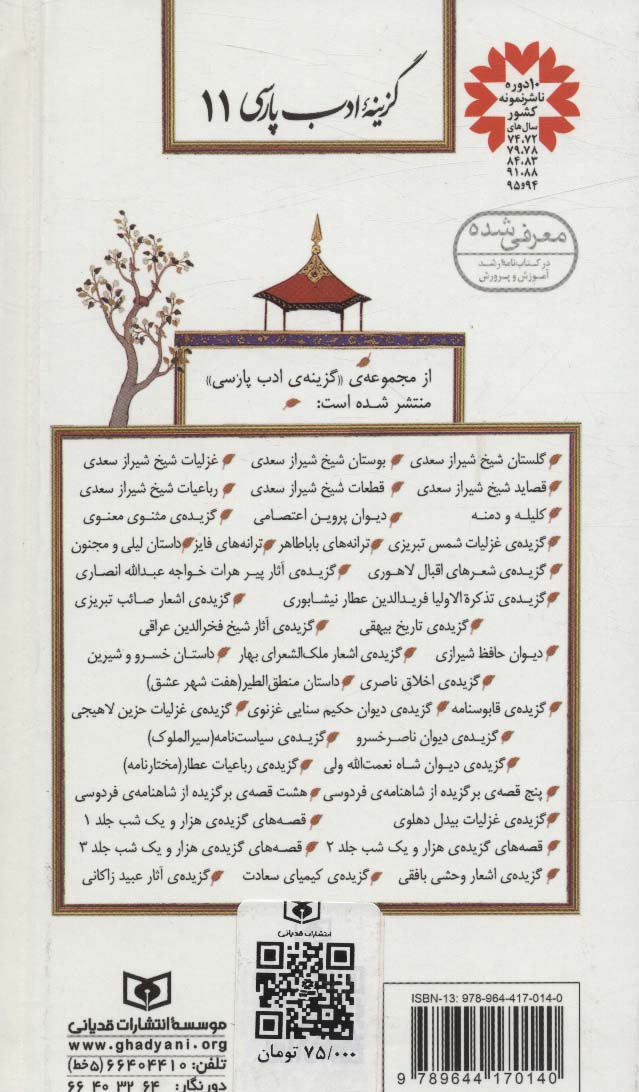 گزینهٔ ادب پارسی ۱۱
۱۰ دوره
ناشر نمونه
کشور
سال‌های
۷۴،۷۲
۷۹،۷۸
۸۴،۸۳
۹۱،۸۸
۹۴و۹۵
معرفی شده
در کتاب‌نامهٔ رشد
آموزش و پرورش
از مجموعه‌ی «گزینه‌ی ادب پارسی»
منتشر شده است:
گلستان شیخ شیراز سعدی بوستان شیخ شیراز سعدی غزلیات شیخ شیراز سعدی
قصاید شیخ شیراز سعدی قطعات شیخ شیراز سعدی رباعیات شیخ شیراز سعدی
کلیله و دمنه دیوان پروین اعتصامی گزیده‌ی مثنوی معنوی
گزیده‌ی غزلیات شمس تبریزی ترانه‌های باباطاهر ترانه‌های فایز داستان لیلی و مجنون
گزیده‌ی شعرهای اقبال لاهوری گزیده‌ی آثار پیر هرات خواجه عبدالله انصاری
گزیده‌ی تذکرة الاولیا فریدالدین عطار نیشابوری گزیده‌ی اشعار صائب تبریزی
گزیده‌ی تاریخ بیهقی گزیده‌ی آثار شیخ فخرالدین عراقی
دیوان حافظ شیرازی گزیده‌ی اشعار ملک‌الشعرای بهار داستان خسرو و شیرین
گزیده‌ی اخلاق ناصری داستان منطق‌الطیر(هفت شهر عشق)
گزیده‌ی قابوسنامه گزیده‌ی دیوان حکیم سنایی غزنوی گزیده‌ی غزلیات حزین لاهیجی
گزیده‌ی دیوان ناصرخسرو گزیده‌ی سیاست‌نامه(سیرالملوک)
گزیده‌ی دیوان شاه نعمت‌الله ولی گزیده‌ی رباعیات عطار(مختارنامه)
پنج قصه‌ی برگزیده از شاهنامه‌ی فردوسی هشت قصه‌ی برگزیده از شاهنامه‌ی فردوسی
گزیده‌ی غزلیات بیدل دهلوی قصه‌های گزیده‌ی هزار و یک شب جلد ۱
قصه‌های گزیده‌ی هزار و یک شب جلد ۲ قصه‌های گزیده‌ی هزار و یک شب جلد ۳
گزیده‌ی اشعار وحشی بافقی گزیده‌ی کیمیای سعادت گزیده‌ی آثار عبید زاکانی
انتشارات قدیانی
۷۵/۰۰۰ تومان
ISBN-13: 978-964-417-014-0
9 789644 170140
موسسهٔ انتشارات قدیانی
www.ghadyani.org
تلفن: ۶۶۴۰۴۴۱۰ (۵ خط)
دورنگار: ۶۶۴۰۳۲۶۴